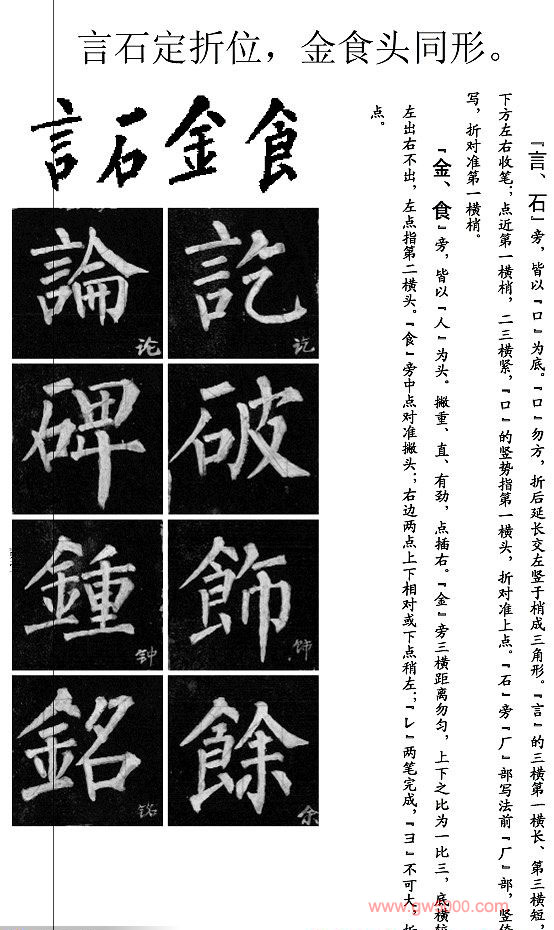 言石定折位，金食头同形。
言石金食
論訖
论 讫
碑破
鍾飾
钟 饰
銘餘
铭 余
『言、石』旁，皆以『口』为底。『口』勿方，折后延长交左竖于梢成三角形。『言』的三横第一横长、第三横短，
下方左右收笔；点近第一横梢，二三横紧，『口』的竖势指第一横头，折对准上点。『石』旁『厂』部写法前『厂』部，竖
写，折对准第一横梢。
『金、食』旁，皆以『人』为头。撇重、直、有劲，点插右。『金』旁三横距离勿匀，上下之比为一比三，底横
左出右不出，左点指第二横头。『食』旁中点对准撇头；右边两点上下相对或下点稍左；『レ』两笔完成，『ヨ』不可大
点。
www.gw5000.com